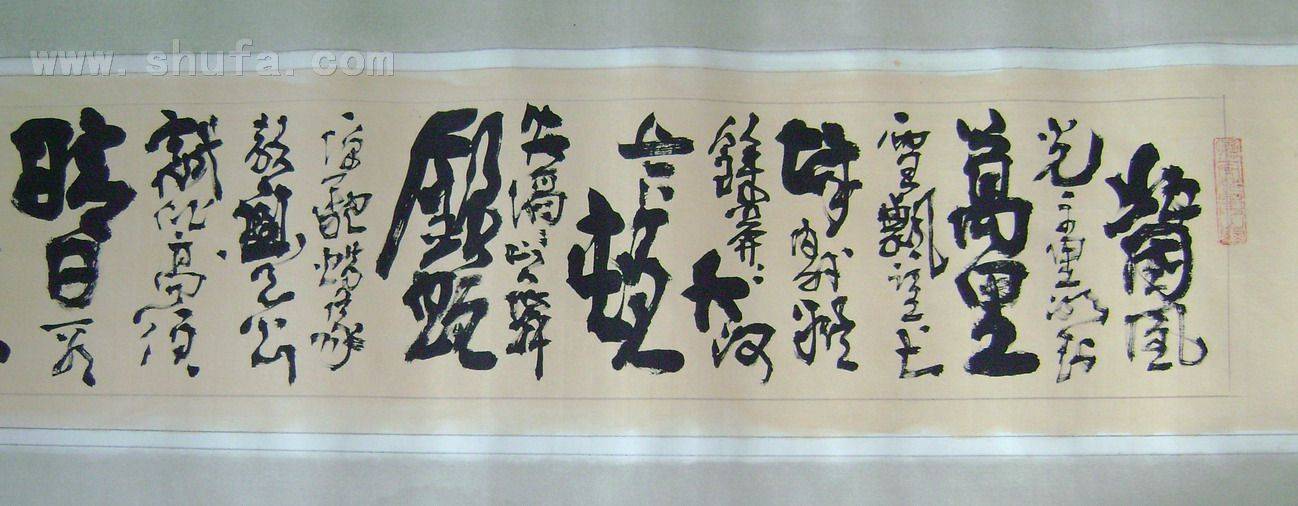 北國風
光千里冰封
萬里
雪飄望長
城內外惟
餘莽々大河
上下頓
失滔々山舞
銀蛇
原馳蠟象
欲與天公
試比高須
晴日看
www.shufa.com